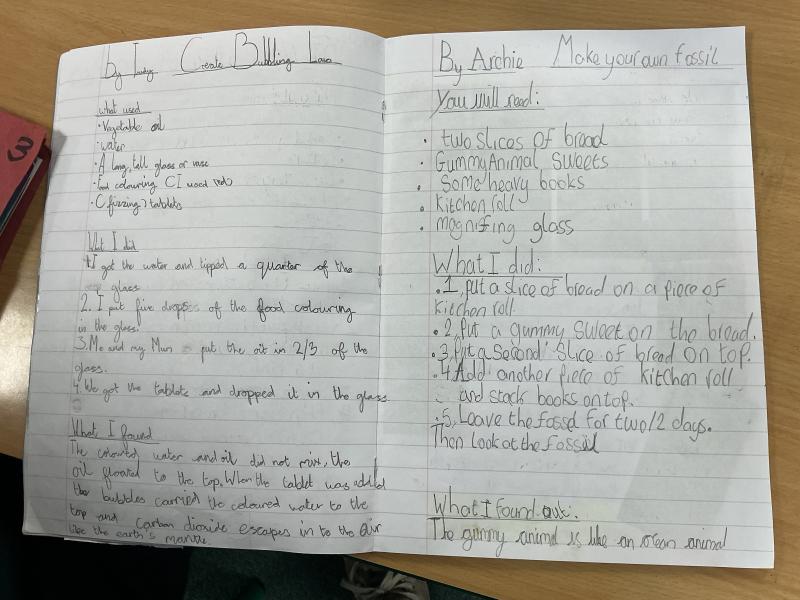 By Create Bubbling Lava
What used
• Vegetable oil
• water
• A long, tall glass or vase
• Food colouring (I used red)
• (fizzing) tablets
What I did
1. I got the water and tipped a quarter of the
glass
2. I put five drops of the food colouring
in the glass.
3. Me and my Mum put the oil in 2/3 of the
glass.
4. We got the tablets and dropped it in the glass
What I found
The coloured water and oil did not mix, the
oil floated to the top. When the tablet was added
the bubbles carried the coloured water to the
top and Carbon dioxide escapes in to the air
like the earth's mantle.
By Archie Make your own fossil
You will need:
• two slices of bread
• Gummy Animal Sweets
• Some heavy books
• Kitchen roll
• magnifing glass
What I did:
• 1. put a slice of bread on a piece of
kitchen roll.
• 2. put a gummy sweet on the bread.
• 3. put a second slice of bread on top.
• 4. Add another piece of kitchen roll
and stack books on top.
• 5. Leave the fossil for two/2 days.
Then look at the fossil
What I found out:
The gummy animal is like an ocean animal
3